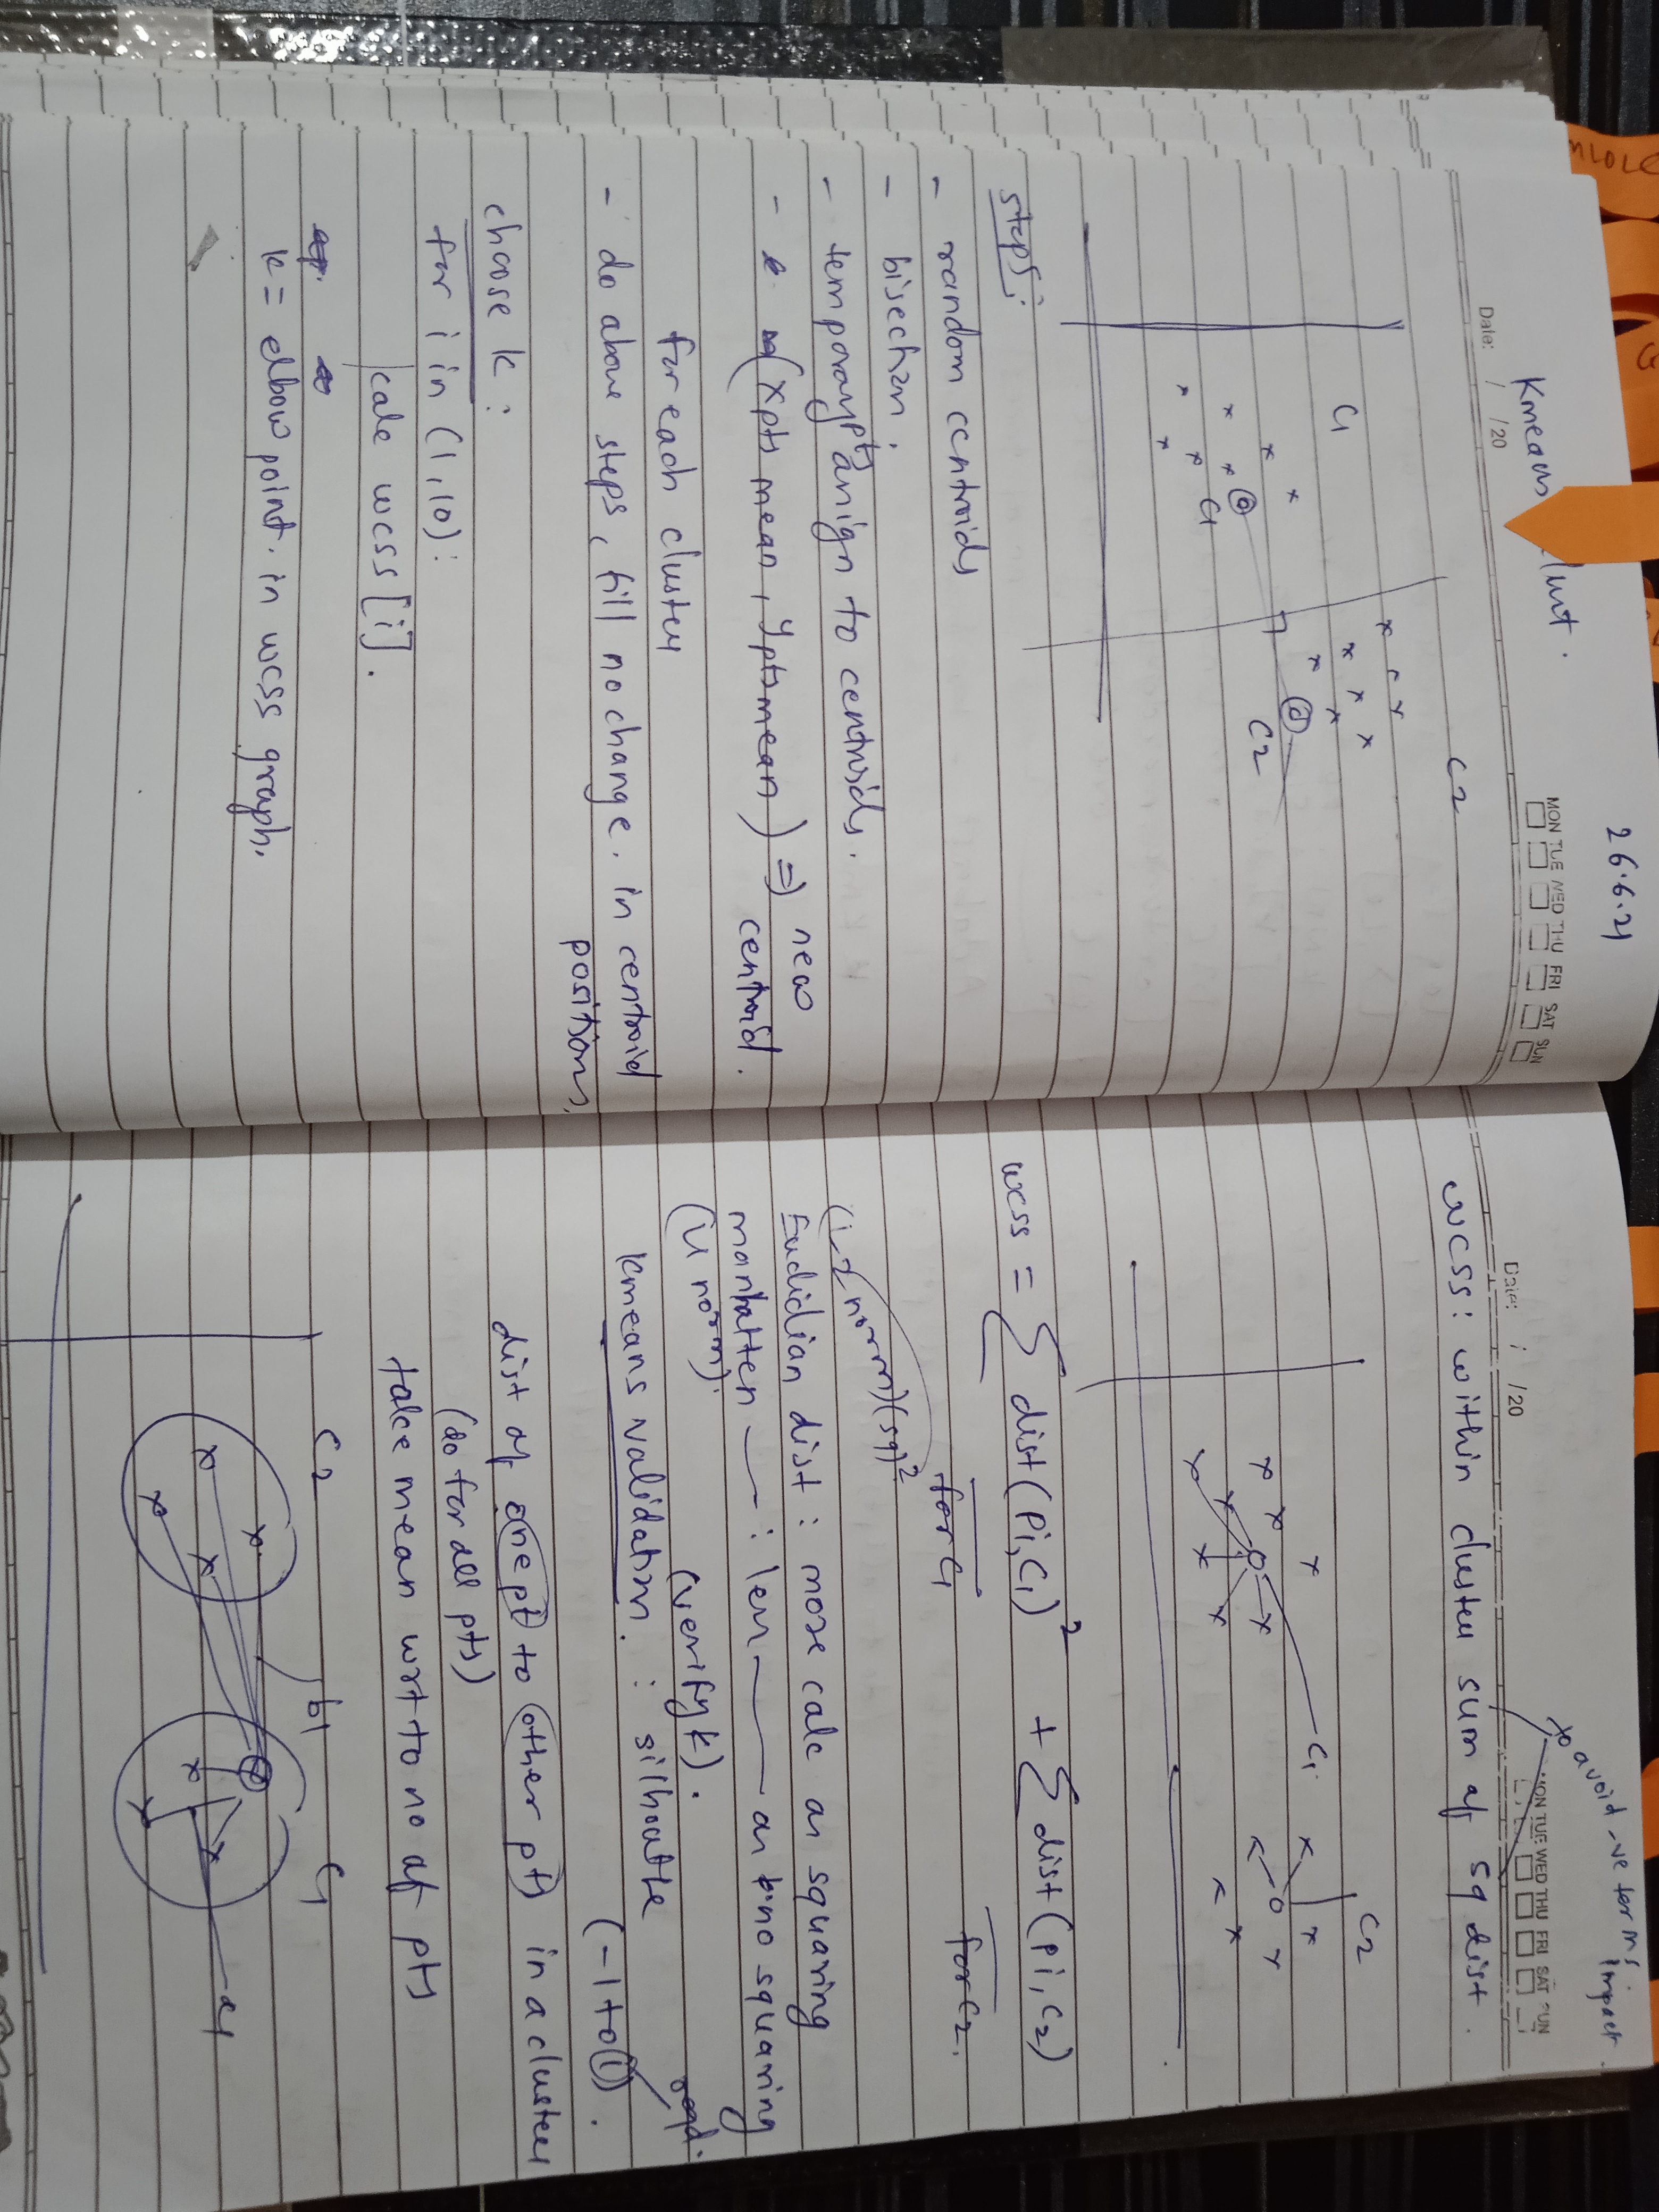 26.6.21
MON TUE WED THU FRI SAT SUN
Date: / /20
Kmeans clust.
C1
C2
C1
C2
steps:
- random centroids
- bisection.
- temporary pts assign to centroids.
- (x pts mean, y pts mean) => new centroid.
for each cluster
- do above steps, till no change. in centroid
positions,
choose k:
for i in (1,10):
calc wcss[i].
k = elbow point. in wcss graph.
avoid -ve terms impact.
MON TUE WED THU FRI SAT SUN
Date: / /20
wcss: within cluster sum of sq dist.
C1
C2
wcss = ∑ dist(Pi,C1)² + ∑ dist(Pi,C2)
for C1
for C2.
(L2 norm)(sq)²
Eucidian dist: more calc as squaring
manhatten — — : less — — as no squaring
(L1 norm).
(verify k).
reqd.
kmeans validation. : silhoutte (-1 to 1).
dist of one pt to other pts in a cluster
(do for all pts)
take mean wrt to no of pts
C2
C1
b1
a1